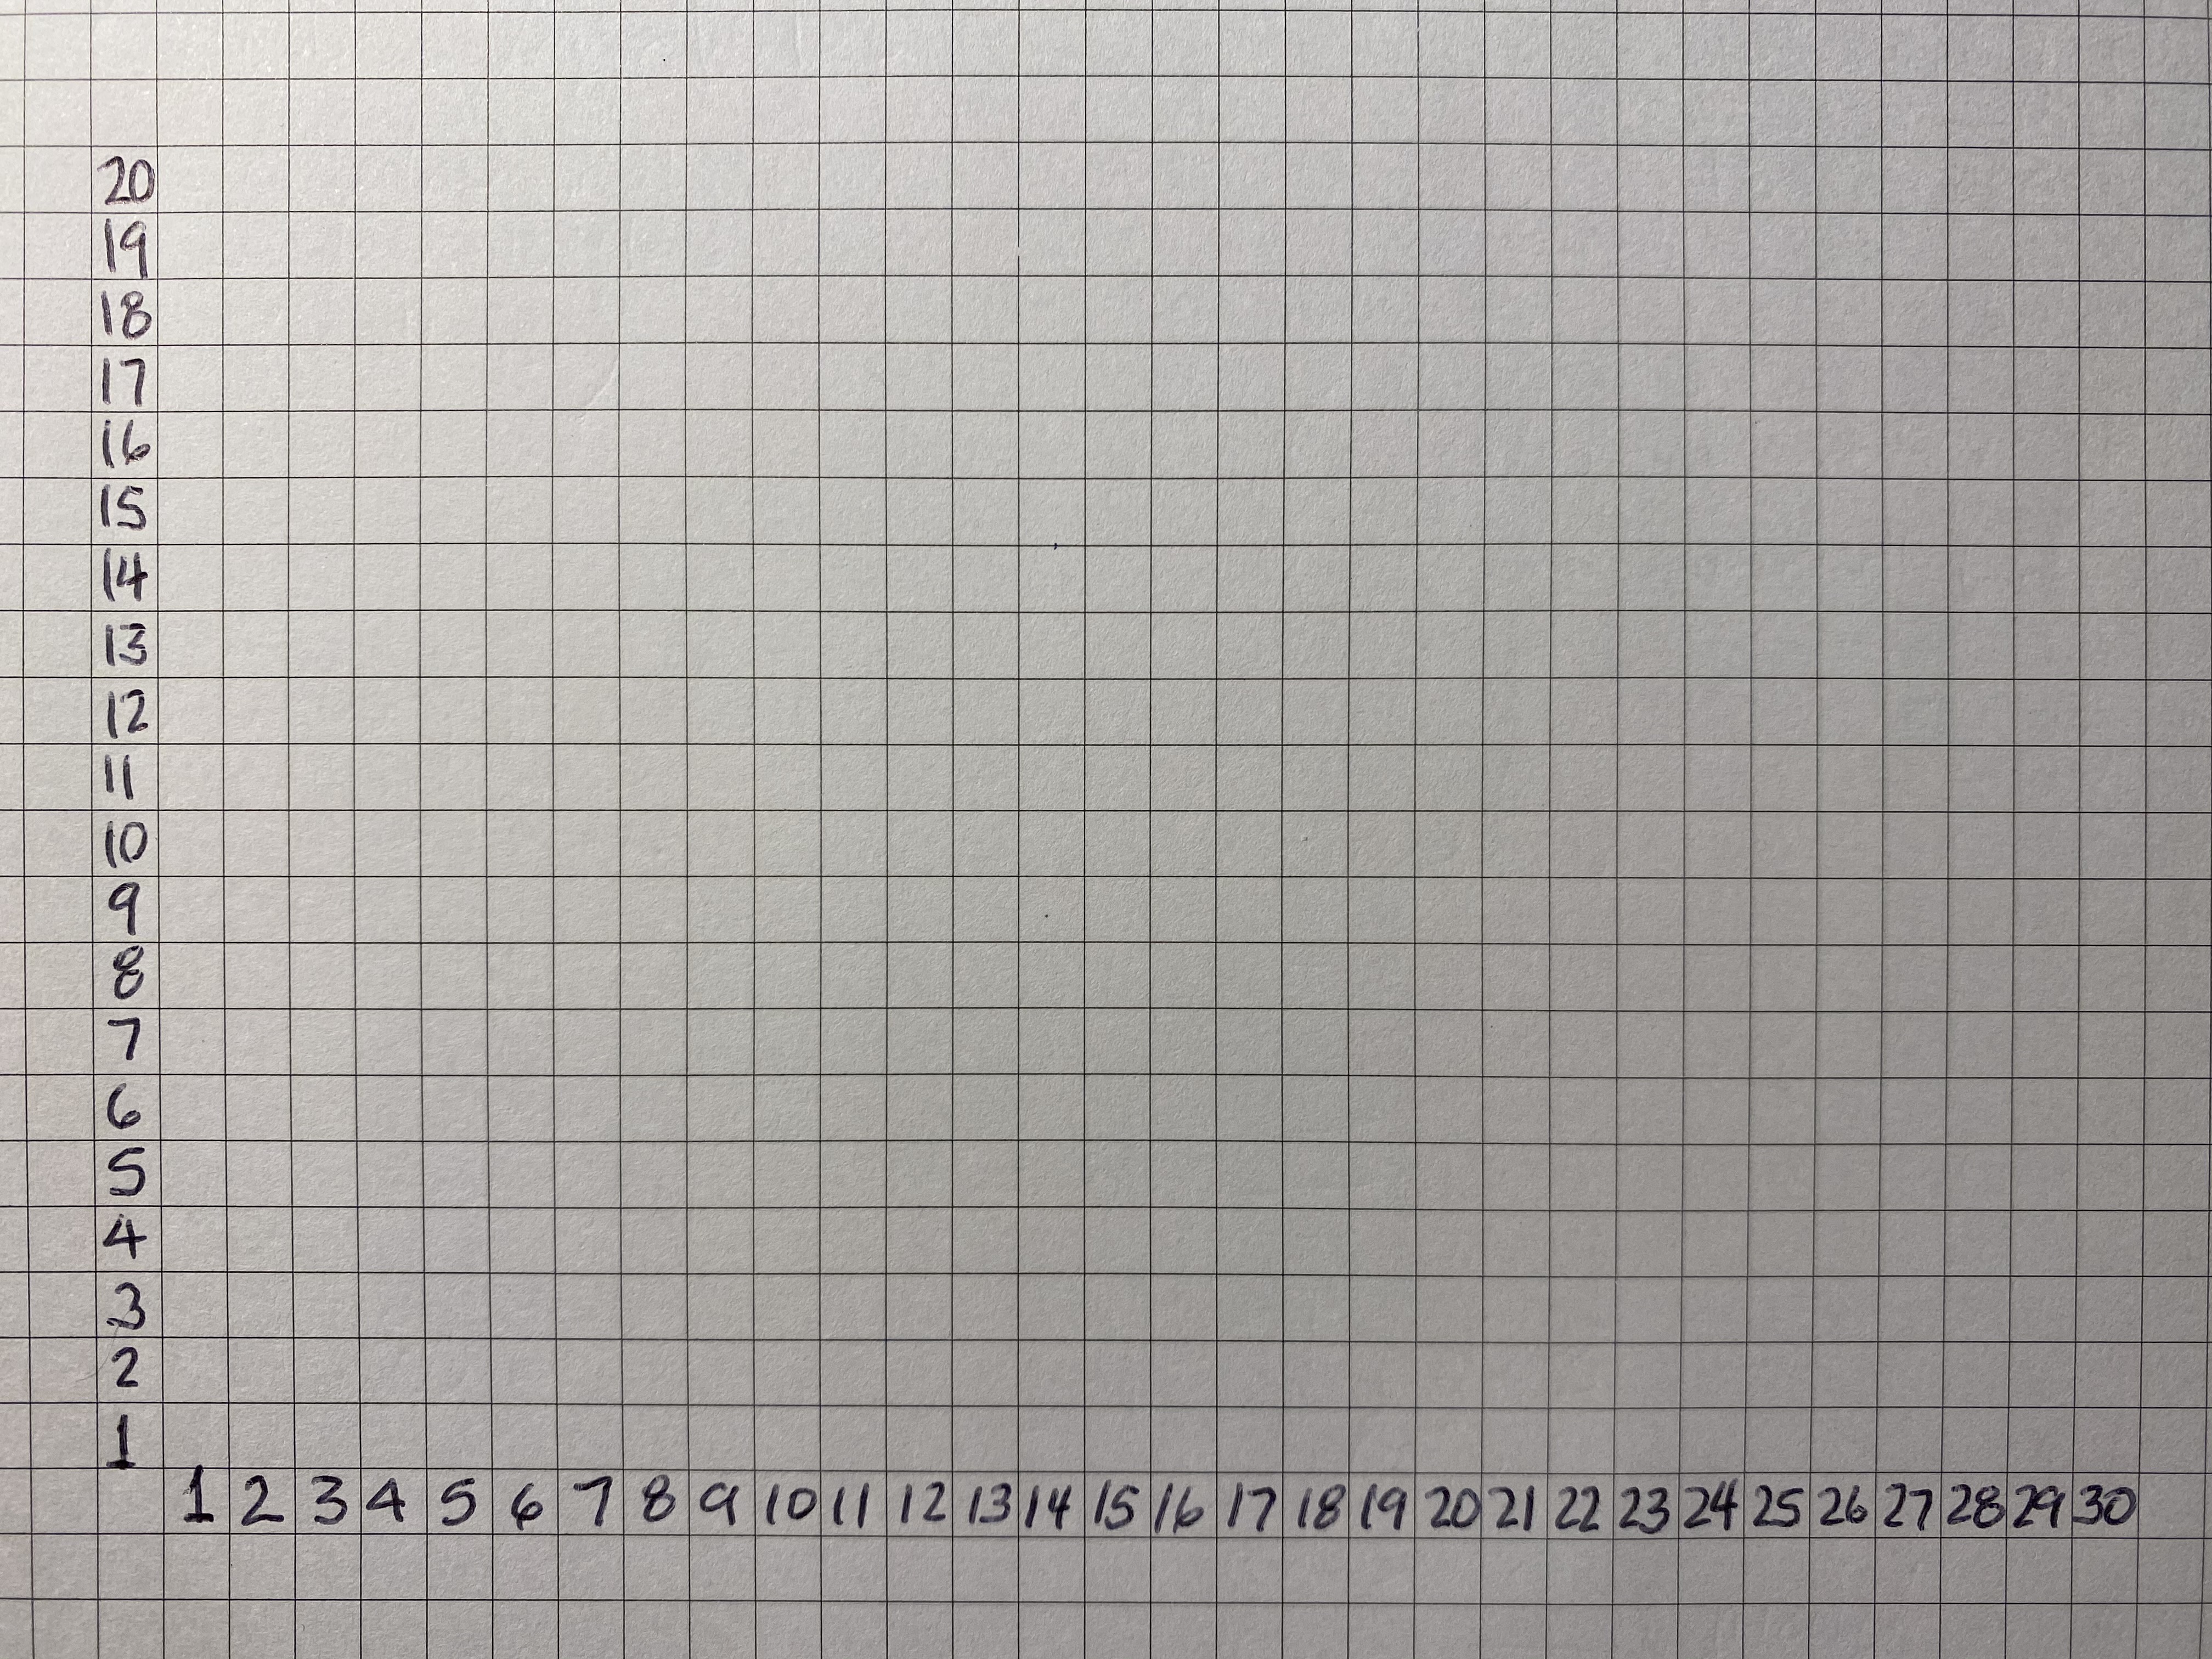 20
19
18
17
16
15
14
13
12
11
10
9
8
7
6
5
4
3
2
1
1 2 3 4 5 6 7 8 9 10 11 12 13 14 15 16 17 18 19 20 21 22 23 24 25 26 27 28 29 30